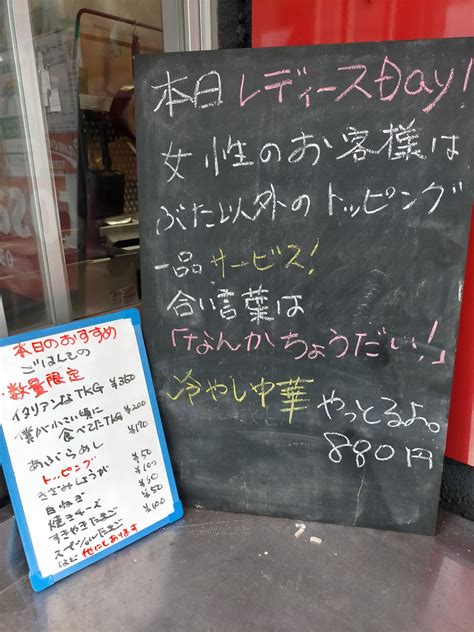 本日 レディースDay!
女性のお客様は
ぶた以外のトッピング
一品サービス!
合い言葉は
「なんかちょうだい!」
冷やし中華 やっとるよ。
880円
本日のおすすめ
ごはんもの
数量限定
イタリアンなTKG ¥350
僕が小さい頃に
食べてたTKG ¥200
あぶらめし ¥170
トッピング
きざみしょうが ¥50
白ねぎ ¥100
焼きチーズ
すきやきたまご ¥50
スペシャルたまご ¥100
他にもあります